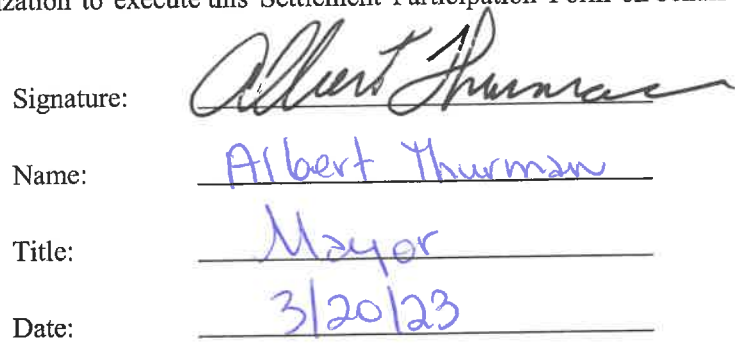 to execute this Settlement Participation Form
Signature: Albert Thurman
Name: Albert Thurman
Title: Mayor
Date: 3/20/23